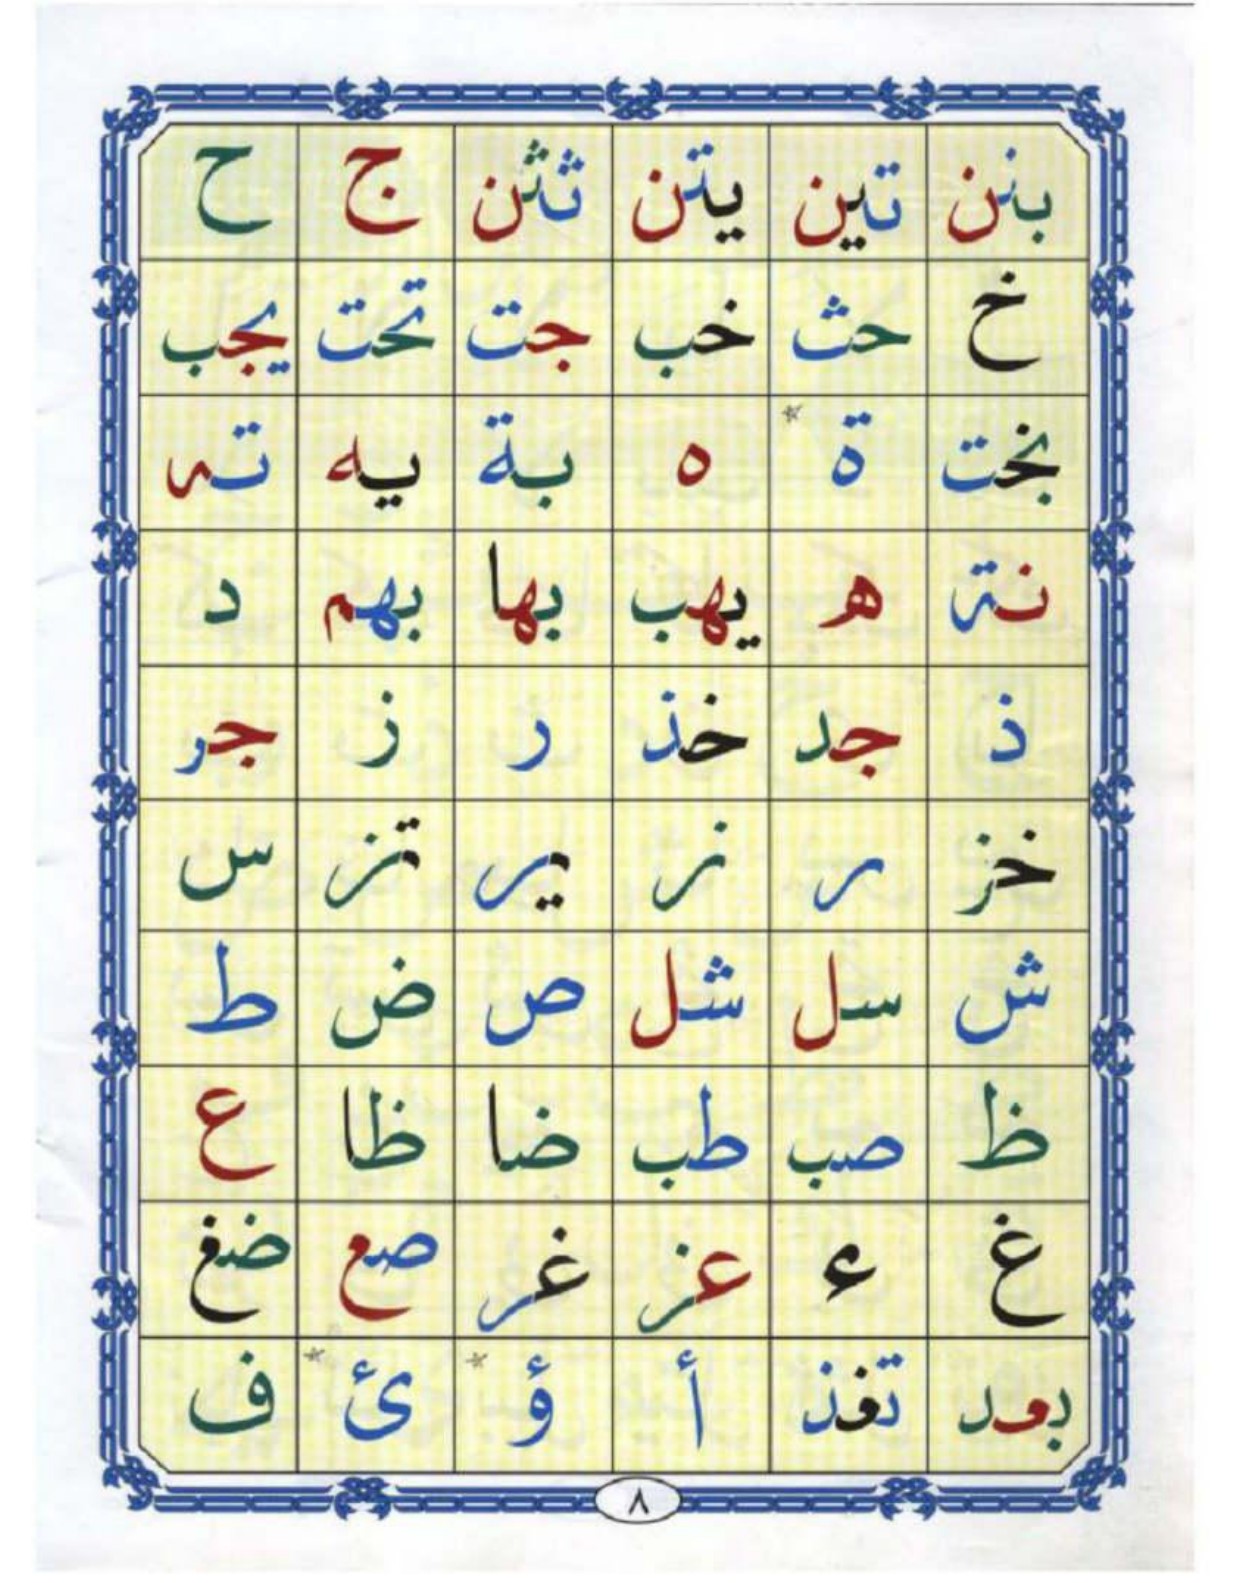 بنن تين يتن ثثن ج ح
خ حث خب جت تحت يجب
بخت ة * ه بة يه ته
نة ه يهب بها بهم د
ذ جد خذ ر ز جر
خز ر ز ير تز س
ش سل شل ص ض ط
ظ صب طب ضا ظا ع
غ ء عز غر صع ضغ
بعد تغذ أ ؤ * ئ * ف
٨